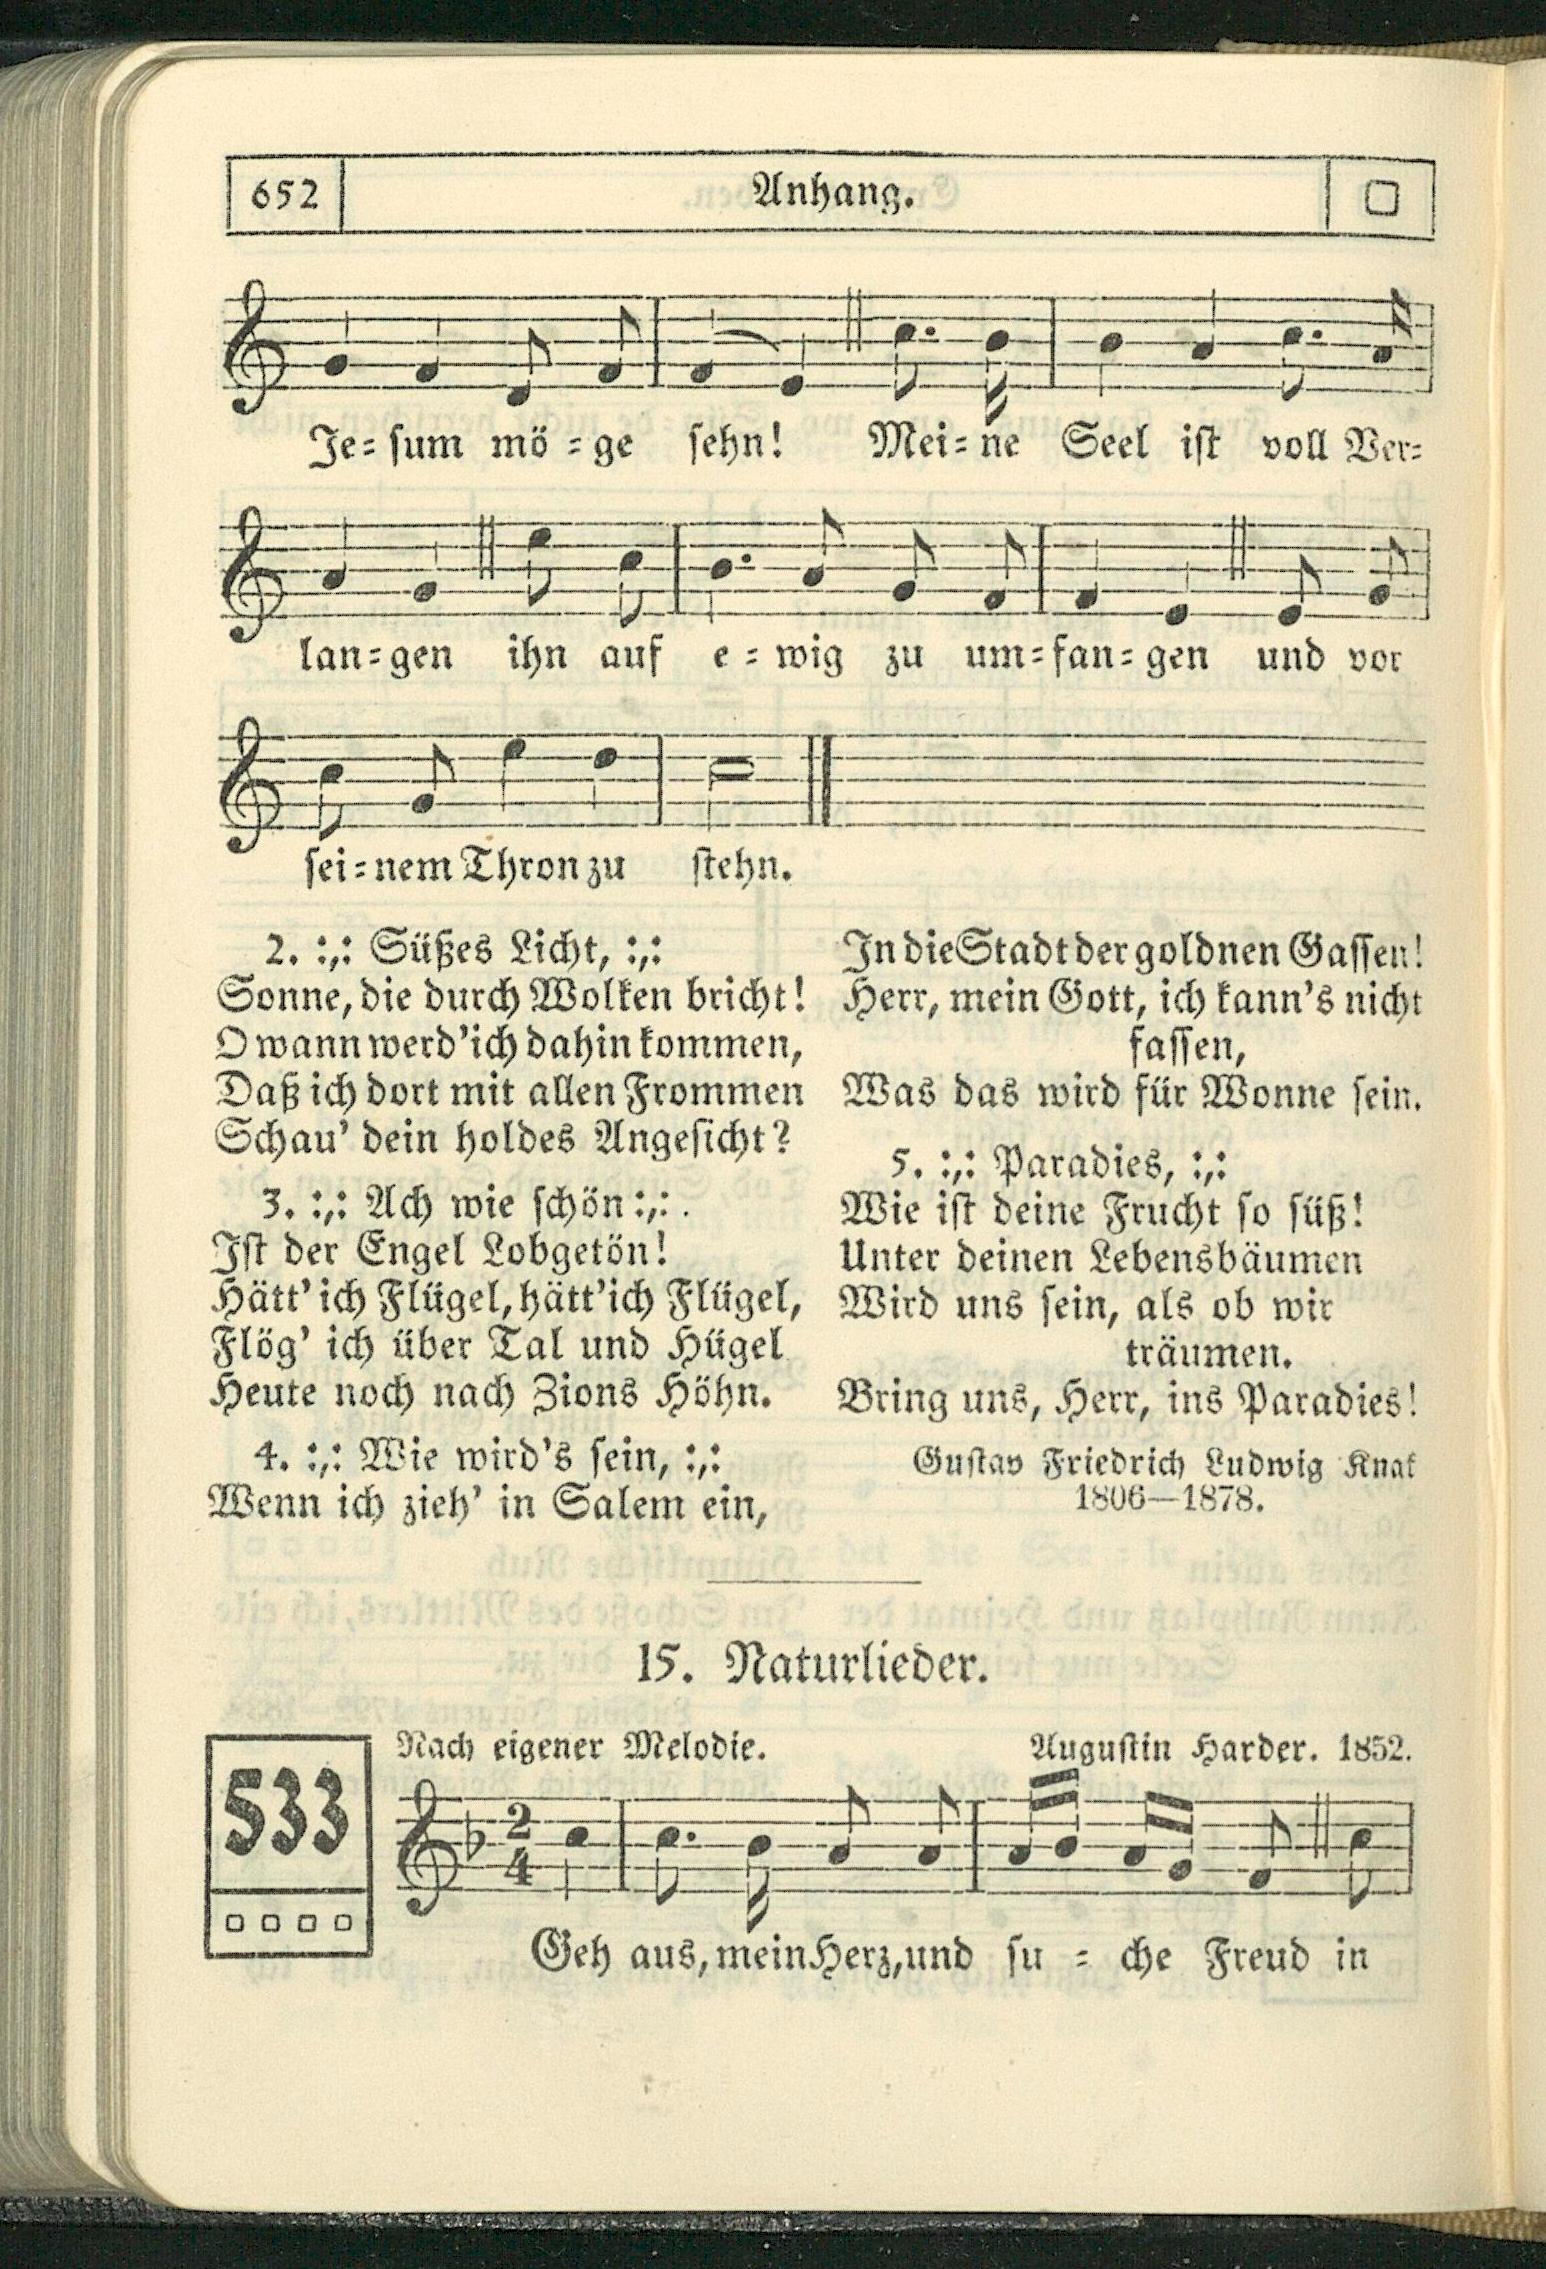 652
Anhang.
Je=sum mö=ge sehn! Mei=ne Seel ist voll Ver=
lan=gen ihn auf e=wig zu um=fan=gen und vor
sei=nem Thron zu stehn.
2. :,: Süßes Licht, :,:
Sonne, die durch Wolken bricht!
O wann werd' ich dahin kommen,
Daß ich dort mit allen Frommen
Schau' dein holdes Angesicht?
3. :,: Ach wie schön :,: .
Ist der Engel Lobgetön!
Hätt' ich Flügel, hätt' ich Flügel,
Flög' ich über Tal und Hügel
Heute noch nach Zions Höhn.
4. :,: Wie wird's sein, :,:
Wenn ich zieh' in Salem ein,
In die Stadt der goldnen Gassen!
Herr, mein Gott, ich kann's nicht
fassen,
Was das wird für Wonne sein.
5. :,: Paradies, :,:
Wie ist deine Frucht so süß!
Unter deinen Lebensbäumen
Wird uns sein, als ob wir
träumen.
Bring uns, Herr, ins Paradies!
Gustav Friedrich Ludwig Knak
1806—1878.
15. Naturlieder.
533
Nach eigener Melodie.
Augustin Harder. 1852.
2
4
Geh aus, mein Herz, und su=che Freud in